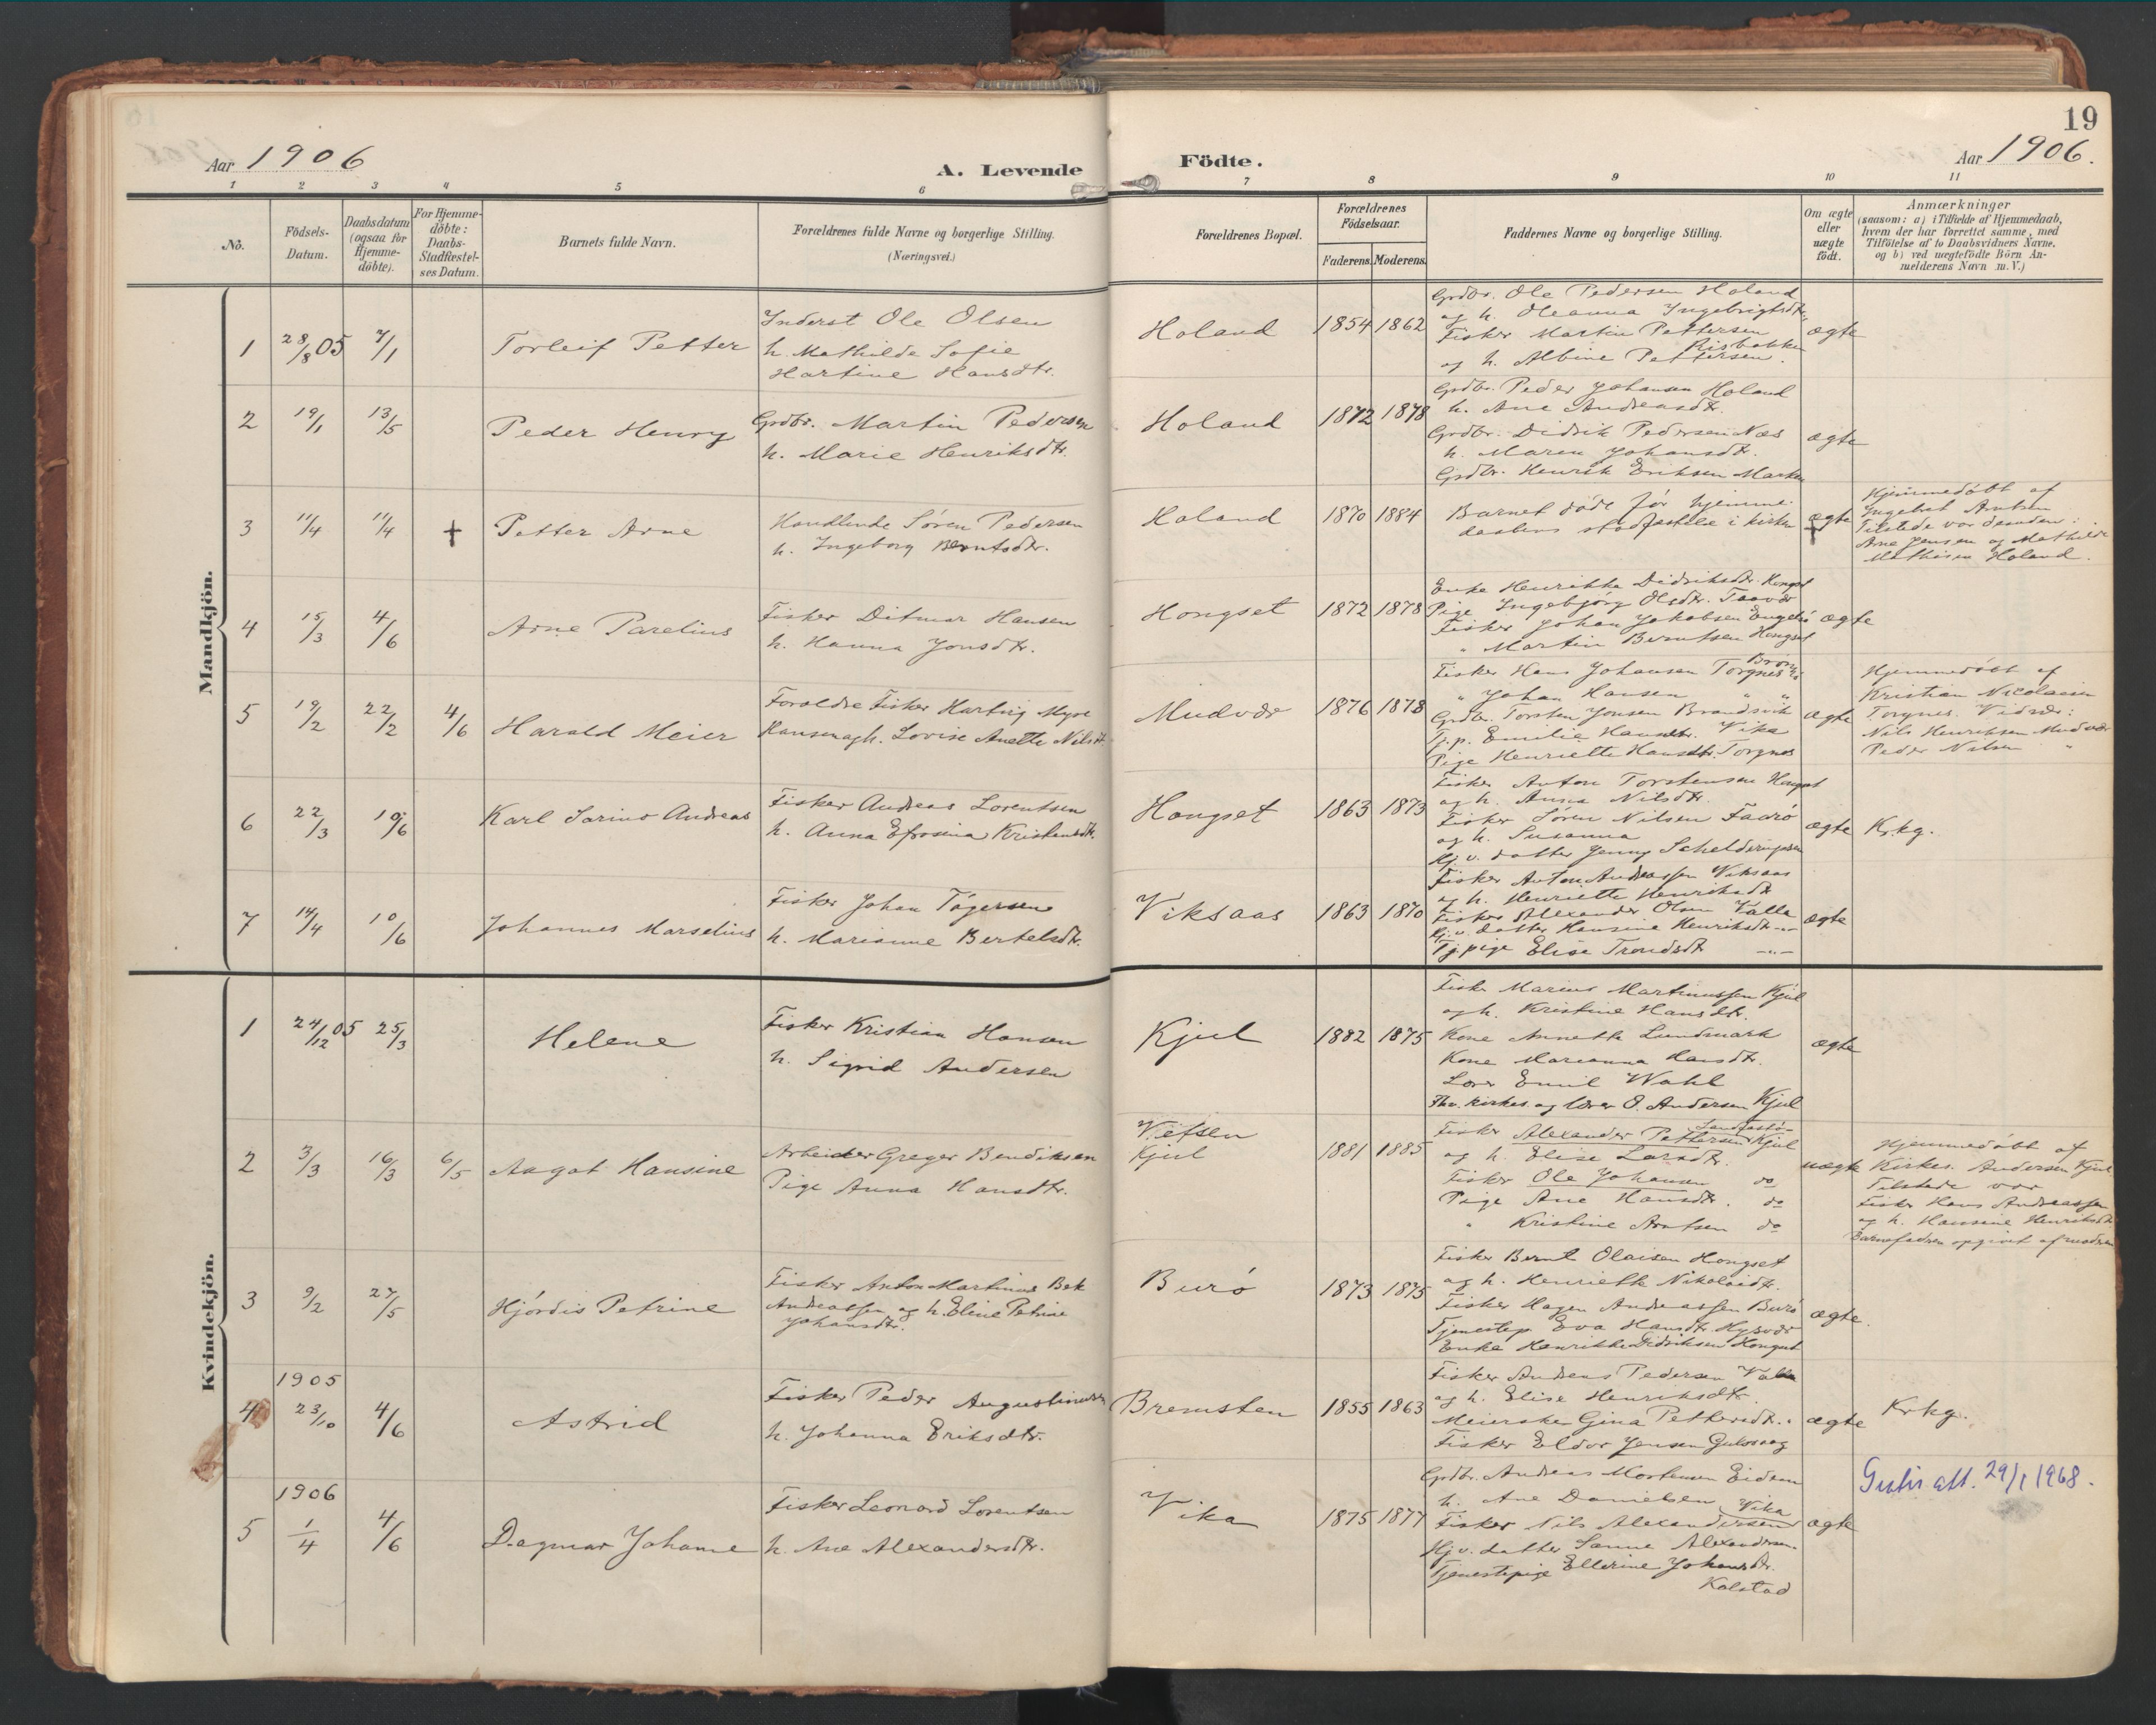 19
Aar 1906
A. Levende Födte.
Aar 1906.
1 2 3 4 5 6 7 8 9 10 11
No.
Födsels-
Datum.
Daabsdatum
(ogsaa for
Hjemme-
döbte).
For Hjemme-
döbte:
Daabs-
Stadfæstel-
ses Datum.
Barnets fulde Navn.
Forældrenes fulde Navne og borgerlige Stilling.
(Næringsvei.)
Forældrenes Bopæl.
Forældrenes
Födselsaar.
Faderens. Moderens.
Faddernes Navne og borgerlige Stilling.
Om ægte
eller
uægte
födt.
Anmærkninger
(saasom: a) i Tilfælde af Hjemmedaab,
hvem der har forrettet samme, med
Tilföielse af to Daabsvidners Navne,
og b) ved uægtefödte Börn An-
melderens Navn m. V.)
Mandkjön.
1 28/8 05 7/1 Torleif Petter
Inderst Ole Olsen
h. Mathilde Sofie
Martine Hansdtr.
Holand 1854 1862
Grdbr. Ole Pedersen Holand
og h. Oleanna Ingebrigtsdtr.
Fisker Martin Pettersen
Risbakken
og h. Albine Pettersen.
ægte
2 19/1 13/5 Peder Henry
Grdbr. Martin Pedersen
h. Marie Henriksdtr.
Holand 1872 1878
Grdbr. Peder Johansen Holand
h. Ane Andreasdtr.
Grdbr. Didrik Pedersen Næs
h. Maren Johansdtr.
Grdbr. Henrik Eriksen Marken
ægte
3 11/4 11/4 † Petter Arne
Handlende Søren Pedersen
h. Ingeborg Berntsdtr.
Holand 1870 1884
Barnet döde før hjemme-
daabens stadfæstelse i kirken
ægte
†
Hjemmedöbt af
Ingebret Arntsen
Tilstede var desuden:
Arne Jensen og Mathilde
Mathisen Holand.
4 15/3 4/6 Arne Parelius
Fisker Ditmar Hansen
h. Hanna Jonsdtr.
Hongset 1872 1878
Enke Henrikke Didriksdtr. Hongset
Pige Ingebjörg Olsdtr. Taavær
Fisker Johan Jakobsen Engelsö
" Martin Berntsen Hongset
ægte
5 19/2 22/2 4/6 Harald Meier
Foreldre Fisker Hartvig Myre
Hansen og h. Lovise Anette Nilsdtr.
Mudvær 1876 1878
Fisker Hans Johansen Torgnes Brönö
" Johan Hansen " "
Grdbr. Torsten Jonsen Brandsvik
Tj.p. Emilie Hansdtr. Vika
Pige Henriette Hansdtr. Torgnes
ægte
Hjemmedöbt af
Kristian Nicolaisen
Torgnes. Vidner:
Nils Henriksen Mudvær
Peder Nilsen "
6 22/3 10/6 Karl Sarino Andreas
Fisker Andreas Lorentsen
h. Anna Efrosina Kristensdtr.
Hongset 1863 1873
Fisker Anton Torstensen Hongset
og h. Anna Nilsdtr.
Fisker Sören Nilsen Faarö
og h. Susanna
Hj. v. datter Jenny Schelderupsen
ægte
Krkg.
7 14/4 10/6 Johannes Marselius
Fisker Johan Tögersen
h. Marianne Bertelsdtr.
Viksaas 1863 1870
Fisker Anton Andreassen Viksaas
og h. Henriette Henriksdtr
Fisker Alexander Olsen Valla
Hj. v. datter Hansine Henriksdtr -"-
Tj.pige Elise Trondsdtr -"-
ægte
Kvindekjön.
1 24/12 05 25/3 Helene
Fisker Kristian Hansen
h. Sigrid Andersen
Kjul 1882 1875
Fisker Marius Martinussen Kjul
og h. Kristine Hansdtr.
Kone Annette Lundmark
Kone Marianna Hansdtr.
Lærer Emil Wahl
Fhv. kirkes. og lærer O. Andersen Kjul
ægte
2 3/3 16/3 6/5 Aagot Hansine
Arbeider Greger Bendiksen
Pige Anna Hansdtr.
Vefsen
Kjul
1881 1885
Fisker Alexander Pettersen Kjul
og h. Elise Larsdtr.
Fisker Ole Johansen do
Pige Ane Hansdtr. do
" Kristine Arntsen do
uægte
Hjemmedöbt af
Kirkes. Andersen Kjul
Tilstede var
Fisker Hans Andreassen
og h. Hansine Henriksdtr
Barnefadren opgivet af moderen
3 9/2 27/5 Hjördis Petrine
Fisker Anton Martinus Bek
Andreassen og h. Eline Petrine
Johansdtr.
Burö 1873 1875
Fisker Bernt Olaisen Hongset
og h. Henriette Nikolaidtr.
Fisker Hagen Andreassen Burö
Tjenestep. Eva Hansdtr. Hysvær
Enke Henrikke Didriksen Hongset
ægte.
4 1905
23/10 4/6 Astrid
Fisker Peder Augustinusen
h. Johanna Eriksdtr.
Bremsten 1855 1863
Fisker Andreas Pedersen Valla
og h. Elise Henriksdtr.
Meierske Gina Pettersdtr.
Fisker Eldor Jensen
ægte
Krkg.
5 1906
1/4 4/6 Dagmar Johanne
Fisker Leonard Lorentsen
h. Ane Alexandersdtr.
Vika 1875 1877
Grdbr. Andreas Mortensen Eidem
h. Ane Danielsen
Vika
Fisker Nils Alexandersen
Hj. v. datter Sanne Alexandersen
Tjenestepige Ellerine Johansdtr.
Kolstad
ægte
att. 29/1 1968.